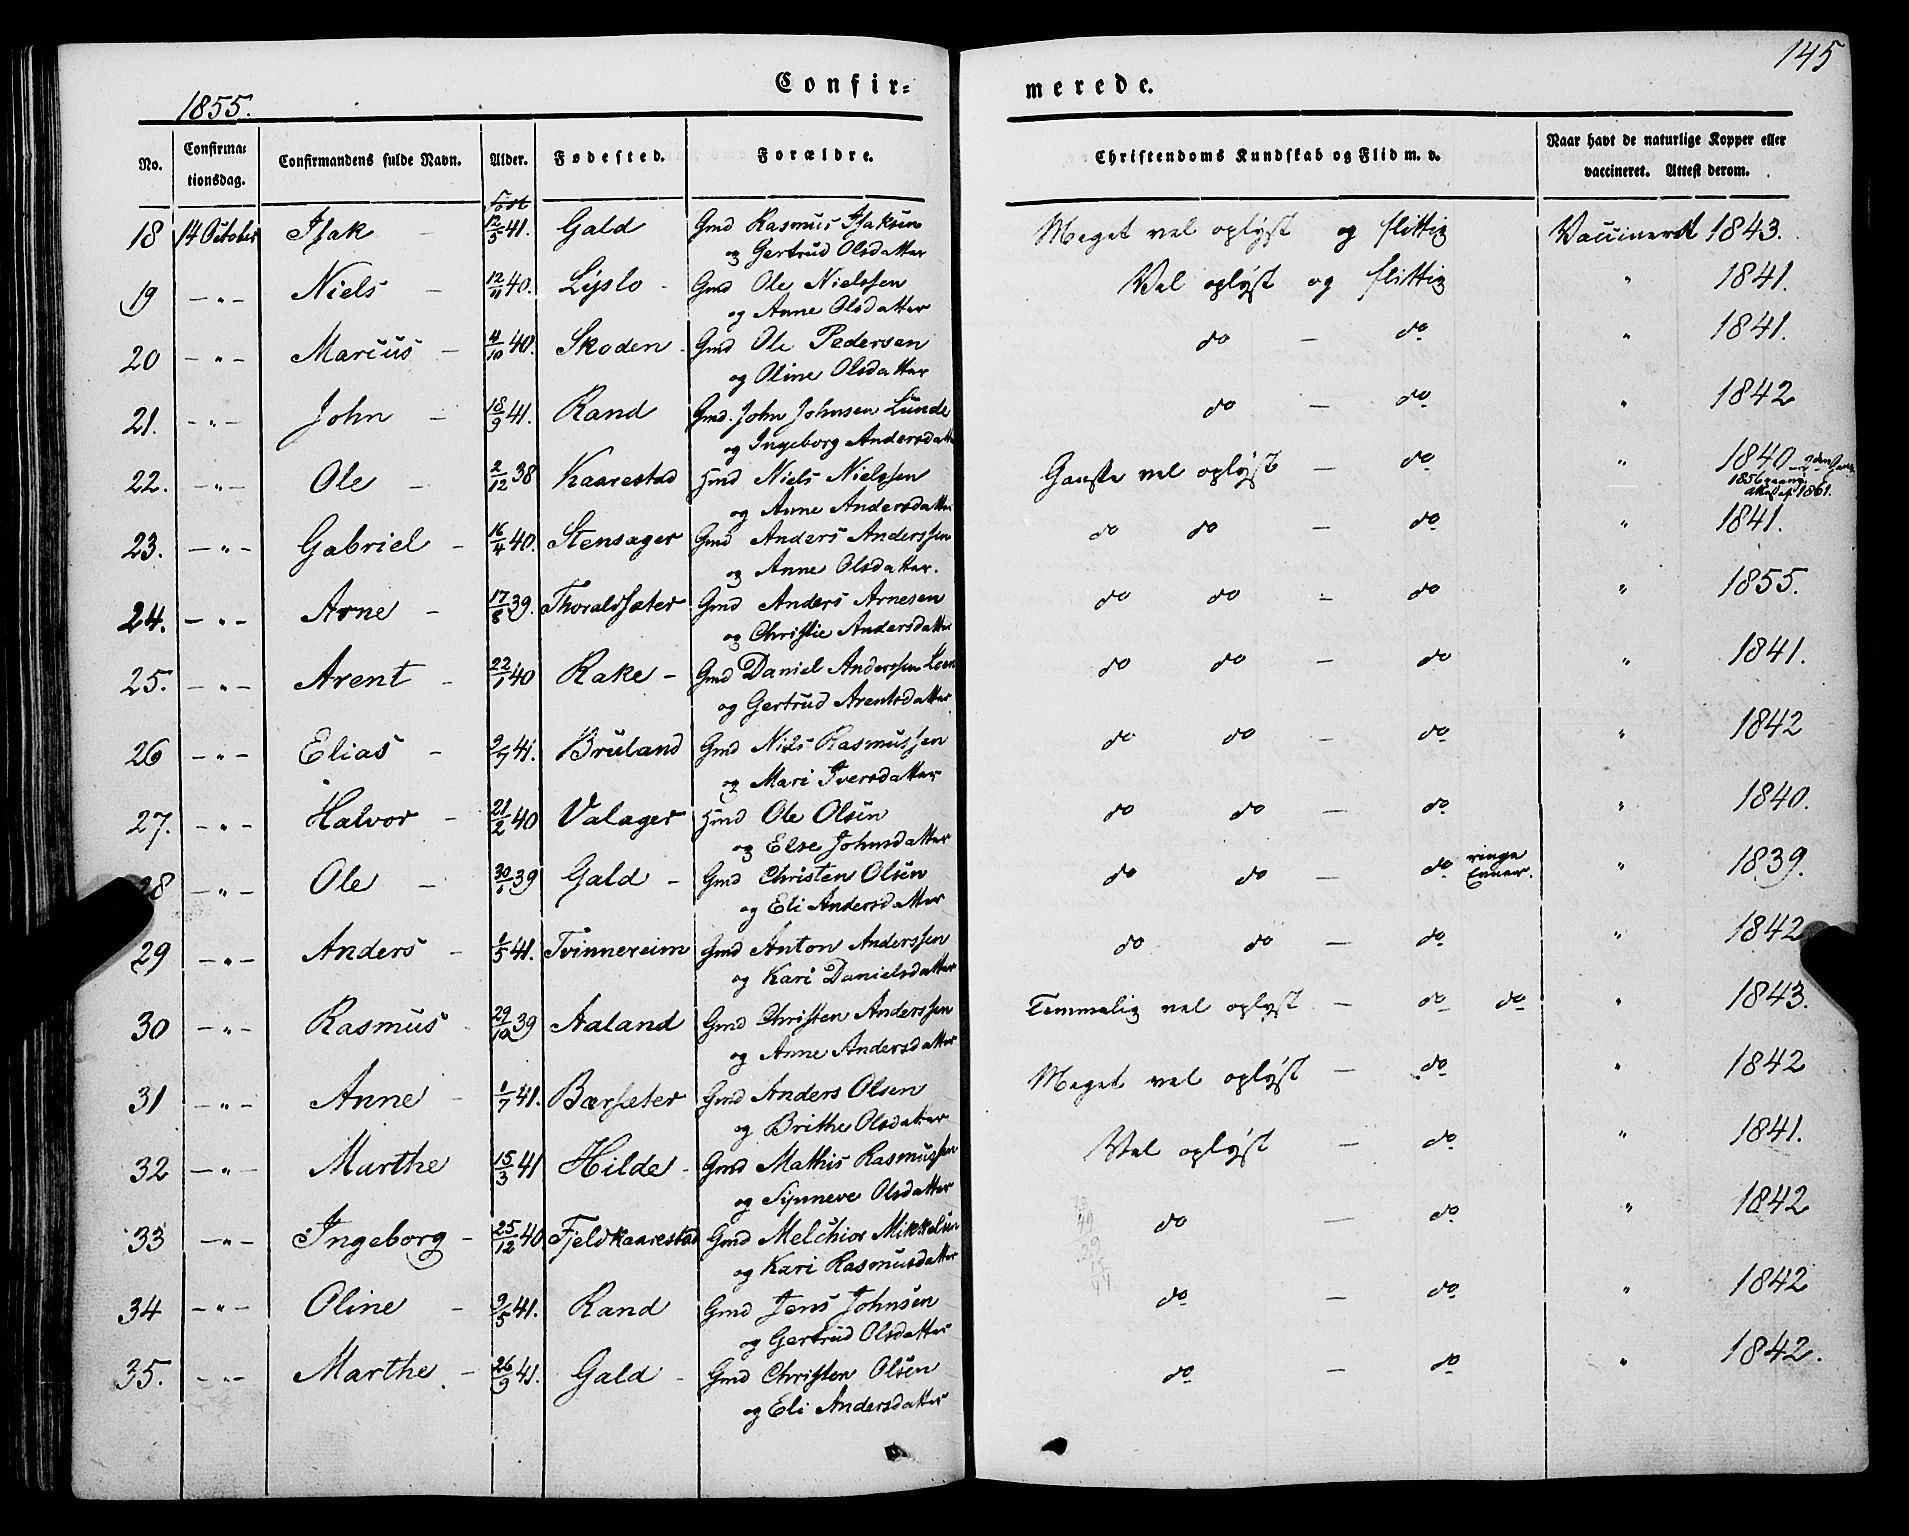 145
1855.
Confir-
merede.
No.
Confirma-
tionsdag.
Confirmandens fulde Navn.
Alder.
Fødested.
Forældre.
Christendoms Kundskab og Flid m. v.
Naar havt de naturlige Kopper eller
vaccineret. Attest derom.
Født
18 14 October Isak - 12/5 41. Gald Gmd Rasmus Isaksen Meget vel oplyst og flittig Vaccineret 1843.
og Gertrud Olsdatter
19 -"- Niels - 12/11 40. Lyslo - Gmd Ole Nielssen Vel oplyst og flittig " 1841.
og Anne Olsdatter
20 -"- Marcus - 4/10 40. Skoden - Gmd Ole Pedersen do - do " 1841.
og Oline Olsdatter
21. -"- John - 18/9 41. Rand Gmd. John Johnsen Lunde do - do " 1842
og Ingeborg Andersdatter
22. -"- Ole - 2/12 38 Kaarestad Hmd Niels Nielssen Ganske vel oplyst - do " 1840 - 2den Gang
1856
1861.
og Anne Andersdatter
23. -"- Gabriel - 16/4 40. Stensager Gmd Anders Anderssen do do - do " 1841.
og Anne Olsdatter.
24. -"- Arne - 17/8 39. Thoralssæter Gmd Anders Arnesen do do - do " 1855.
og Christie Andersdatter
25. -"- Arent - 22/1 40 Rake - Gmd Daniel Anderssen Loen do do - do " 1841.
og Gertrud Arentsdatter
26 -"- Elias - 2/7 41. Bruland Gmd Niels Rasmussen do do - do " 1842
og Mari Iversdatter
27. -"- Halvor - 21/2 40 Valager Hmd Ole Olsen do do - do " 1840.
og Else Johnsdatter
28 -"- Ole - 30/1 39 Gald - Gmd Christen Olsen do do - do ringe
Evner. " 1839.
og Eli Andersdatter
29 -"- Anders - 1/5 41. Tvinnereim Gmd Anton Anderssen do do - do " 1842
og Kari Danielsdatter
30 -"- Rasmus - 29/12 39 Aaland Gmd Christen Anderssen Temmelig vel oplyst - do do " 1843.
og Anne Andersdatter
31 -"- Anne - 1/7 41. Bærsæter Gmd Anders Olsen Meget vel oplyst - do " 1842
og Brithe Olsdatter
32 -"- Marthe 15/3 41 Hilde - Gmd Mathis Rasmussen Vel oplyst - do " 1841.
og Synneve Olsdatter
33 -"- Ingeborg - 25/12 40 Fjeldkaarestad Gmd Melchior Mikkelsen do - do " 1842
og Kari Rasmusdatter
34 -"- Oline - 9/5 41. Rand Gmd Jens Johnsen do - do " 1842
og Gertrud Olsdatter
35. -"- Marthe - 26/9 41. Gald - Gmd Christen Olsen do - do " 1842.
og Eli Andersdatter